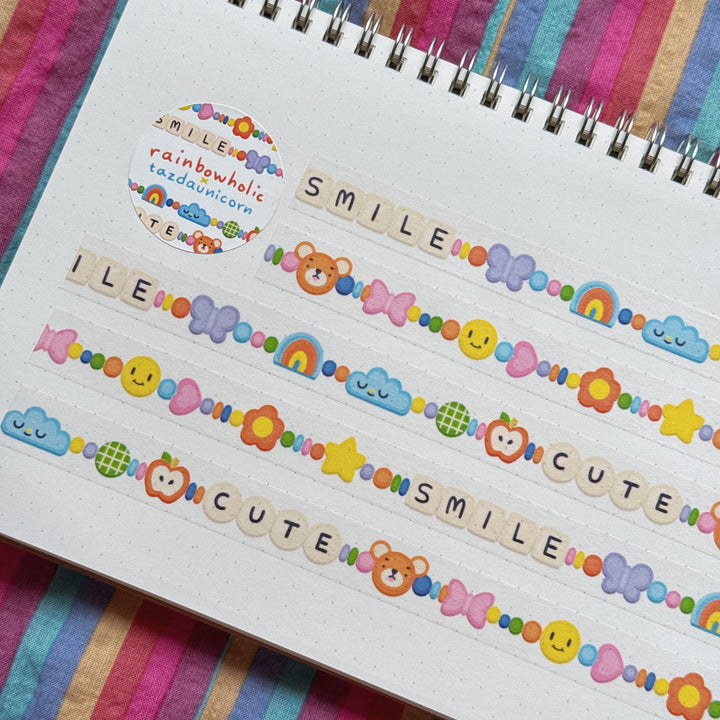 SMILE
rainbowholic
x
tazdaunicorn
CUTE
SMILE
ILE
CUTE
SMILE
CUTE